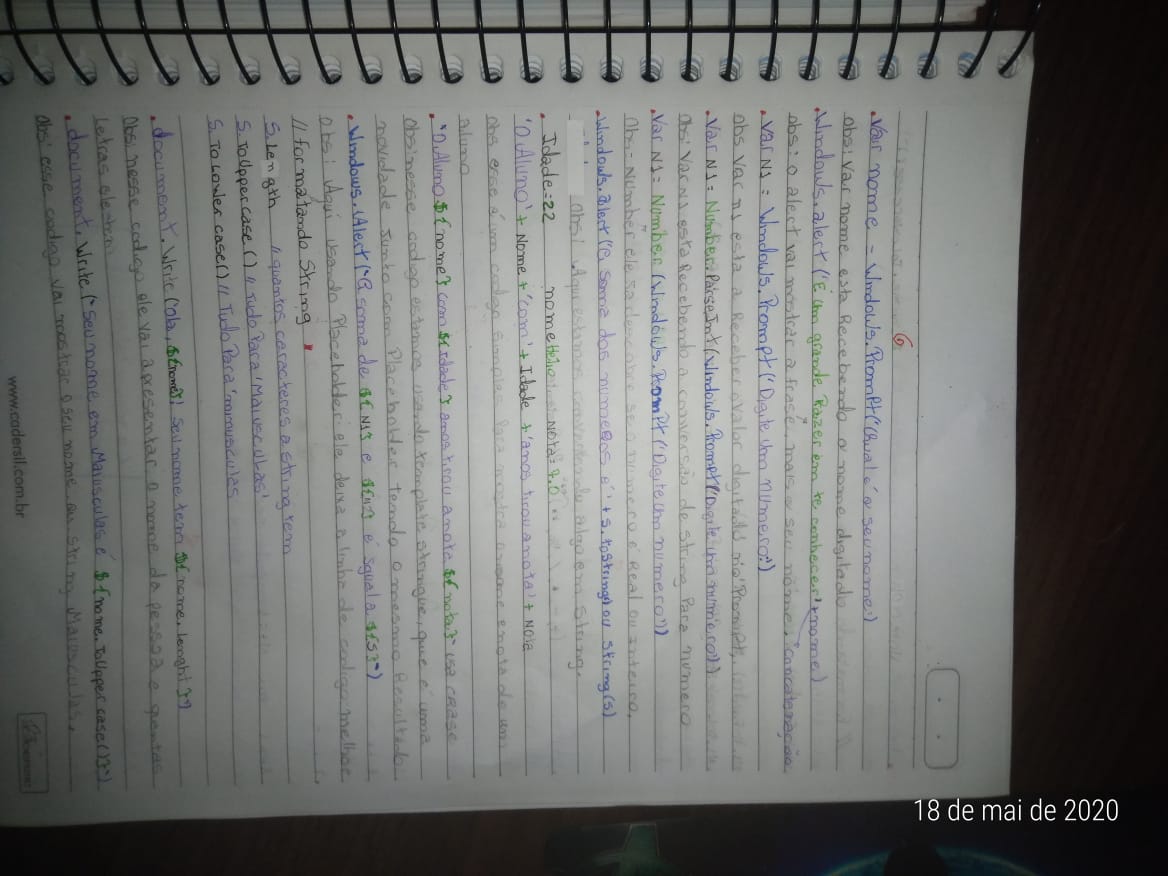 6
• Var nome = Windows.Prompt('Qual é o seu nome:)
Obs: Var nome está Recebendo o nome digitado
• Windows.alert('É um grande Razer em te conhecer!'+nome)
obs: o alert vai mostrar a frase, mais o seu nome. "concatenação
• Var N1 = Windows.Prompt('Digite um numero:')
obs Var n1 esta a Receber o Valor digitado no 'Prompt,
• Var N1 = Number.ParseInt(Windows.Prompt('Digite um numero:'))
Obs: Var n1 está Recebendo a conversão de string Para numero
• Var N1 = Number(Windows.Prompt('Digite um numero'))
Obs- Number ele sabe se o numero é Real ou inteiro.
• Windows.alert('A soma dos numeros é' + s.toString() ou String(s)
Obs: Aqui estamos convertendo algo em String.
• Idade=22 nome Nota=7.0
'O Aluno' + Nome + 'com' + Idade + 'anos tirou a nota' + Nota
Obs esse é um codigo simples Para mostra o nome e nota de um
aluno
• `O Aluno ${nome} com ${idade} anos tirou a nota ${nota}` usa crase
Obs: nesse codigo estamos usando template stringue, que é uma
novidade Junto com Placeholder tendo o mesmo Resultado.
• Windows.(Alert(`A soma de ${N1} e ${n2} é igual a ${S}`)
Obs: Aqui usando Placeholder ele deixa a linha de codigo melhor.
// formatando String "
S.Length // quantos caracteres a string tem
S.ToUppercase() // Tudo Para 'Maiusculas'
S.ToLowercase() // Tudo Para 'minusculas
• document.Write(`Ola, ${nome}! seu nome tem ${nome.lenght}`)
Obs: nesse codigo ele vai apresentar o nome da pessoa e quantas
Letras ele tem
• document.Write(`seu nome em Maiusculas é ${nome.ToUppercase()}`)
Obs: esse codigo vai mostrar o seu nome ou string Maiusculas.
www.cadersil.com.br
18 de mai de 2020